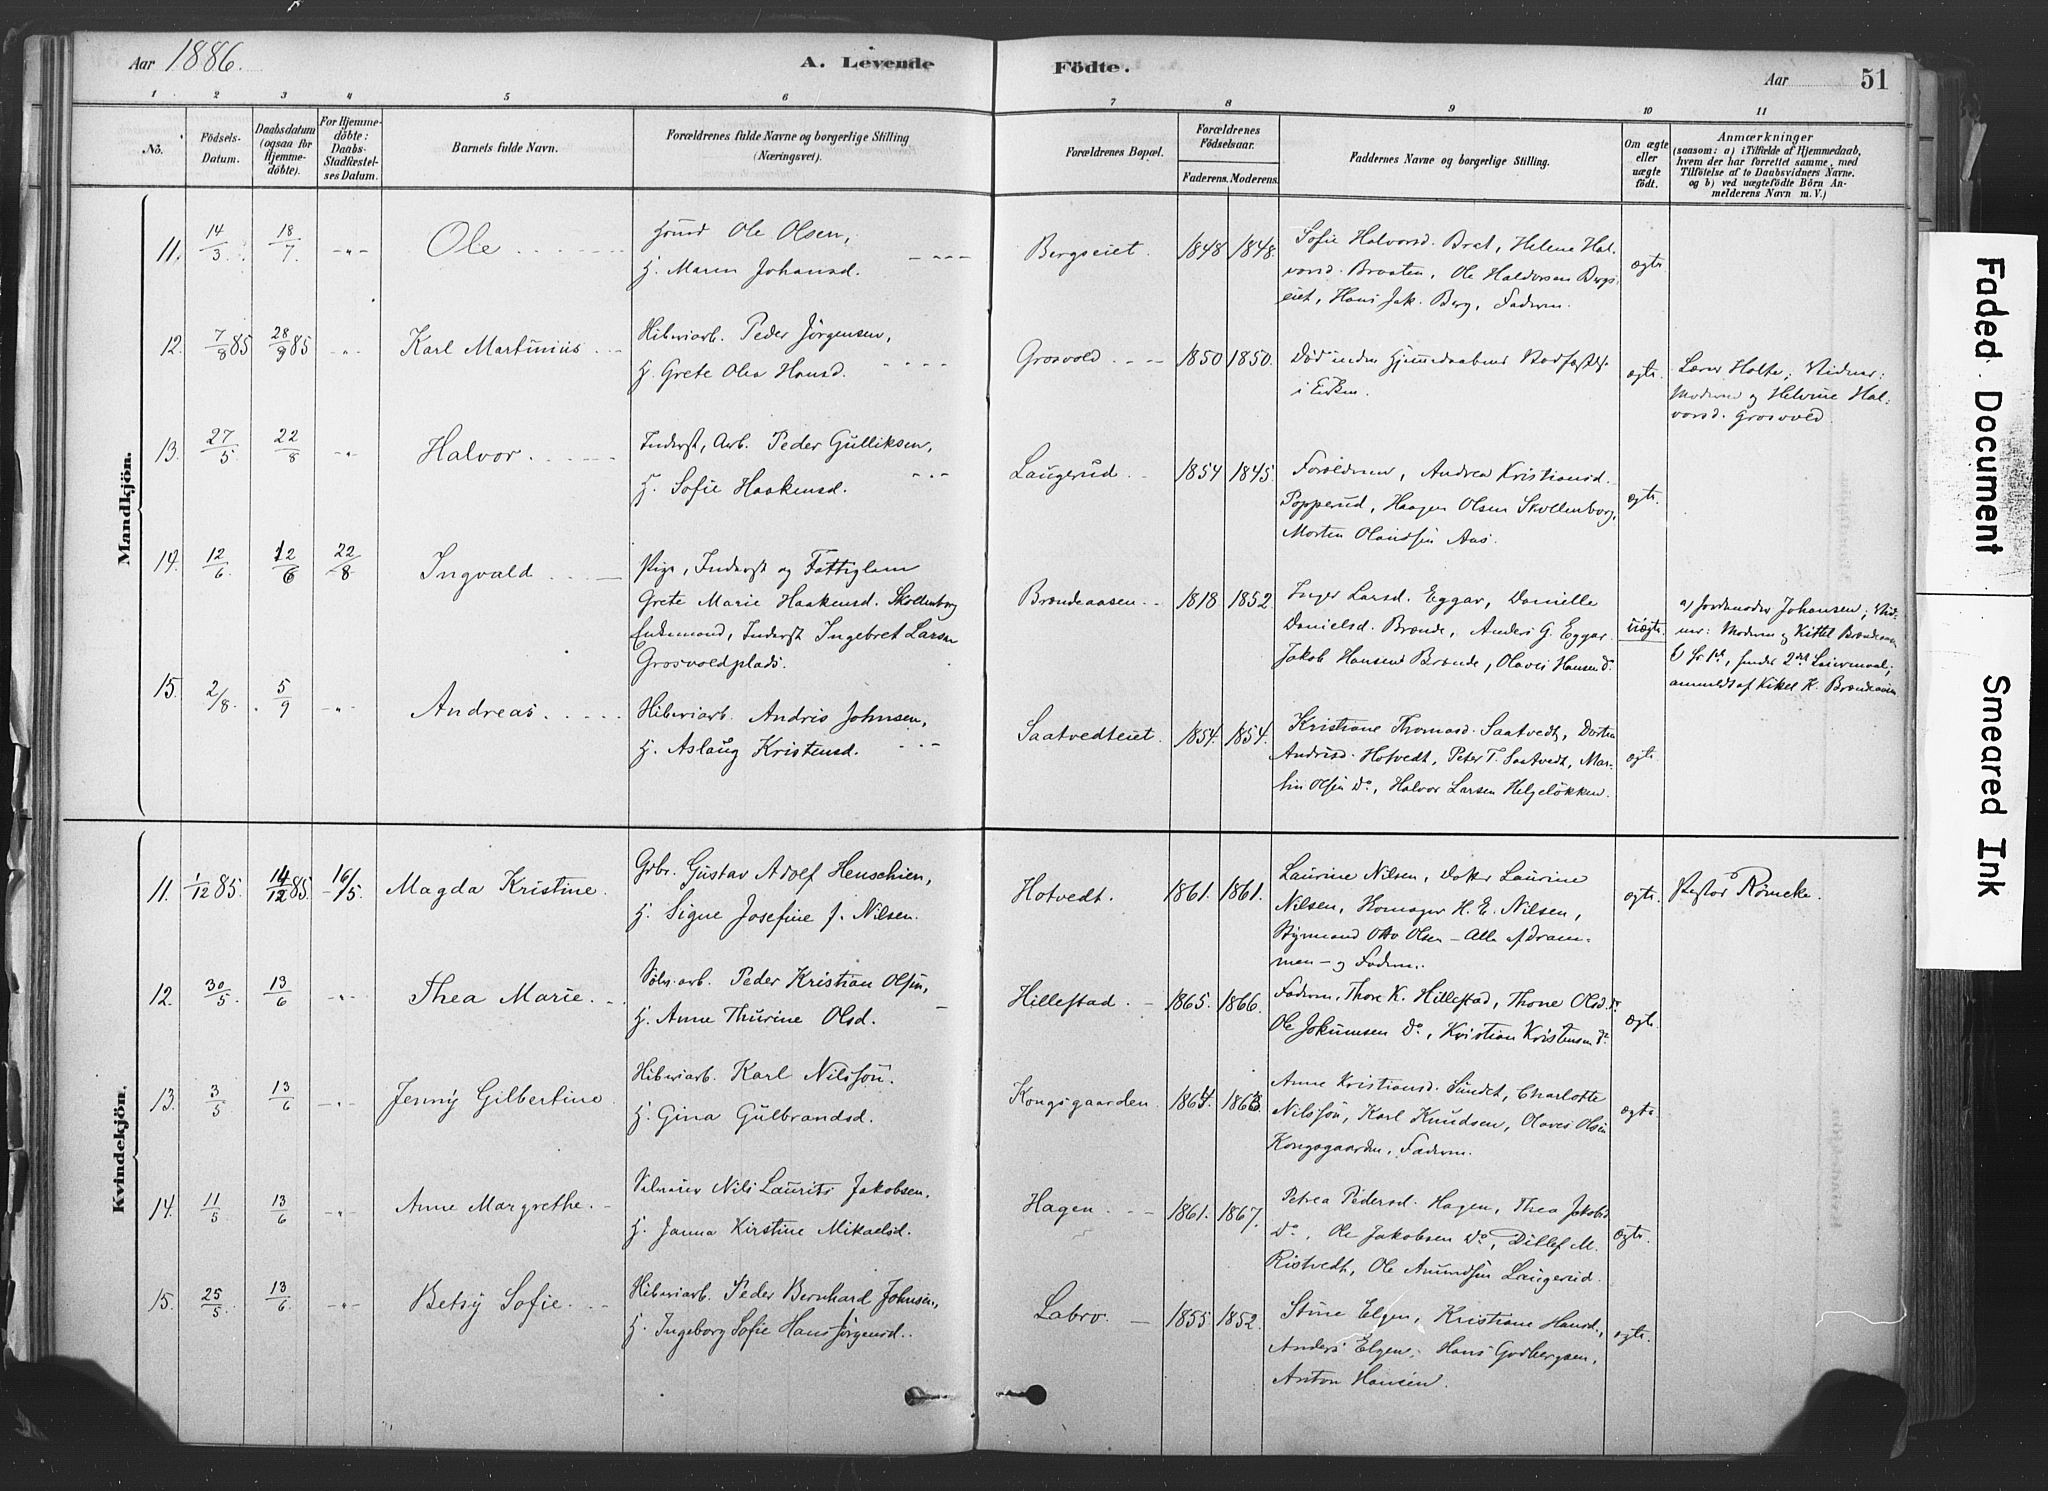 Aar 1886.
A. Levende Födte.
Aar 51
1 2 3 4 5 6 7 8 9 10 11
No.
Födsels-Datum.
Daabsdatum (ogsaa for Hjemme-döbte).
For Hjemme-döbte: Daabs-Stadfæstel-ses Datum.
Barnets fulde Navn.
Forældrenes fulde Navne og borgerlige Stilling (Næringsvei).
Forældrenes Bopæl.
Forældrenes Födselsaar.
Faderens. Moderens.
Faddernes Navne og borgerlige Stilling.
Om ægte eller uægte födt.
Anmærkninger
(saasom: a) i Tilfælde af Hjemmedaab, hvem der har forrettet samme, med Tilföielse af to Daabsvidners Navne. og b) ved uægtefödte Börn An-melderens Navn m. V.)
Mandkjön.
11. 14/3 18/7 -"- Ole
Ole Olsen,
H. Maren Johansd.
Bergseiet. 1848 1848.
Sofie Halvorsd. Bret, Helene Hal-
vorsd. Braaten, Ole Haldorsen Bergs-
eiet, Hans Jak. Berg, Faderen.
ægte
12. 7/8 85 28/9 85 -"- Karl Martinius
Peder Jörgensen,
H. Grete Olea Hansd.
Grosvold 1850 1850.
Död inden Hjemmedaabens Stadfæstelse
i Kirken.
ægte.
Lærer Holte; Vidner:
Moderen og Helvine Hal-
vorsd. Grosvold.
13. 27/5 22/8 -"- Halvor
Inderst, Arb. Peder Gulliksen,
H. Sofie Haakensd.
Laugerud 1854 1845.
Forældrene, Andrea Kristiansd.
Popperud, Haagen Olsen Skollenborg,
Morten Olavesen Aas.
ægte.
14. 12/6 12/6 22/8 Ingvald
Pige, Inderst og Fattiglem
Grete Marie Haakensd. Skollenborg
Enkemand, Inderst Ingebret Larsen
Grosvoldplads.
Brøndeaasen 1818 1852.
Inger Larsd. Eggar, Danielle
Danielsd. Brønde, Anders G. Eggar.
Jakob Hansen Brønde, Olaves Hansen Do.
uægte.
a) Jordmoder Johansen; Vid-
ner: Moderen og Kittel Brøndeaasen
b) for 1st, 2det Leiermaal,
anmeldt af Kittel K. Brøndeaasen
15. 2/8. 5/9 -"- Andreas.
Andris Johnsen,
H. Aslaug Kristensd.
Saatvedteiet. 1854. 1854.
Kristiane Thomasd. Saatvedt, Dortea
Andrisd. Hotvedt, Peter T. Saatvedt, Mar-
tin Olsen Do, Halvor Larsen Helgeløkken.
ægte.
Kvindekjön.
11. 1/12 85. 14/12 85. 16/5. Magda Kristine.
Grbr. Gustav Adolf Henschien,
H. Signe Josefine f. Nilsen.
Hotvedt. 1861. 1861.
Laurine Nilsen, Datter Laurine
Nilsen, H. E. Nilsen,
Styrmand Otto Olsen - Alle af Dram-
men - og Faderen.
ægte.
Pastor Römcke.
12. 30/5 13/6 -"- Thea Marie.
Peder Kristian Olsen,
H. Anne Thurine Olsd.
Hillestad. 1865. 1866.
Faderen, Thore K. Hillestad, Thone Olsd. Do
Ole Jokumsen Do, Kristian Kristensen Do.
ægte.
13. 3/5 13/6 -"- Jenny Gilbertine
Karl Nilssön.
H. Gina Gulbrandsd.
Kongsgaarden. 1864. 1863
Anne Kristiansd. Sundet, Charlotte
Nilssön, Karl Knudsen, Olaves Olsen
Kongsgaarden, Faderen.
ægte
14. 11/5 13/6 -"- Anne Margrethe.
Nils Laurits Jakobsen.
H. Janna Kirstine Mikaelsd.
Hagen. 1861. 1867.
Petrea Pedersd. Hagen, Thea Jakobsd.
Do, Ole Jakobsen Do, Ditlef M.
Ristvedt, Ole Amundsen Laugerud.
ægte.
15. 25/5 13/6 -"- Betsy Sofie.
Peder Bernhard Johnsen,
H. Ingeborg Sofie Hans Jørgensd.
Labro. 1855 1852.
Stine Elgen, Kristiane Hansd.,
Anders Elgen, Hans Godbergsen,
Anton Hansen.
ægte.
Faded Document
Smeared Ink